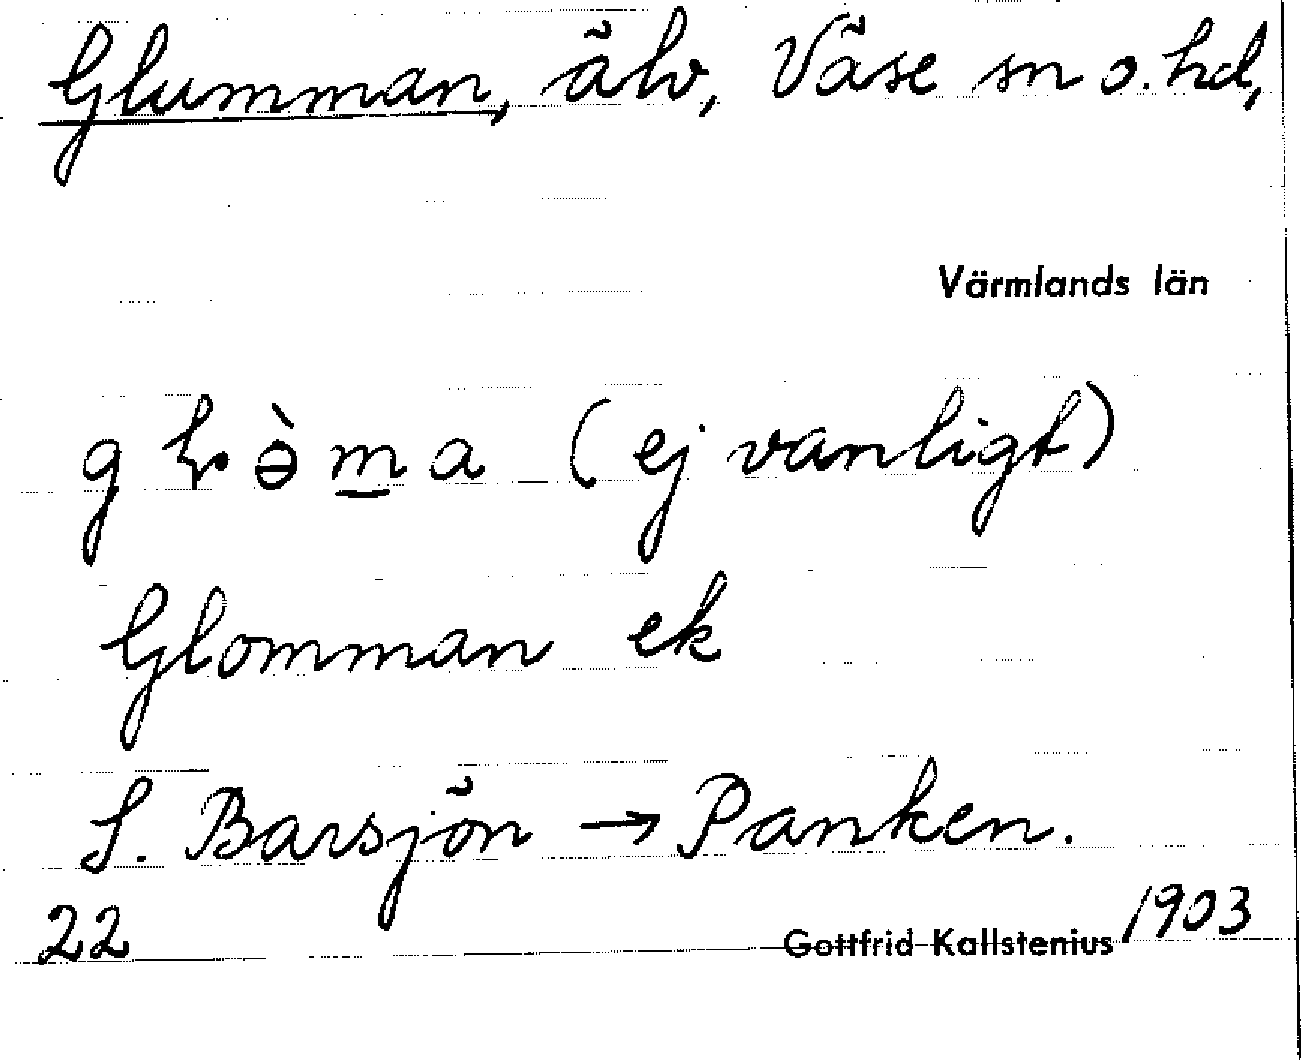 Glumman, älv, Väse sn o. hd,
Värmlands län
gɫə̀m̲a (ej vanligt)
Glomman ek
S. Barsjön → Panken.
22 Gottfrid Kallstenius 1903